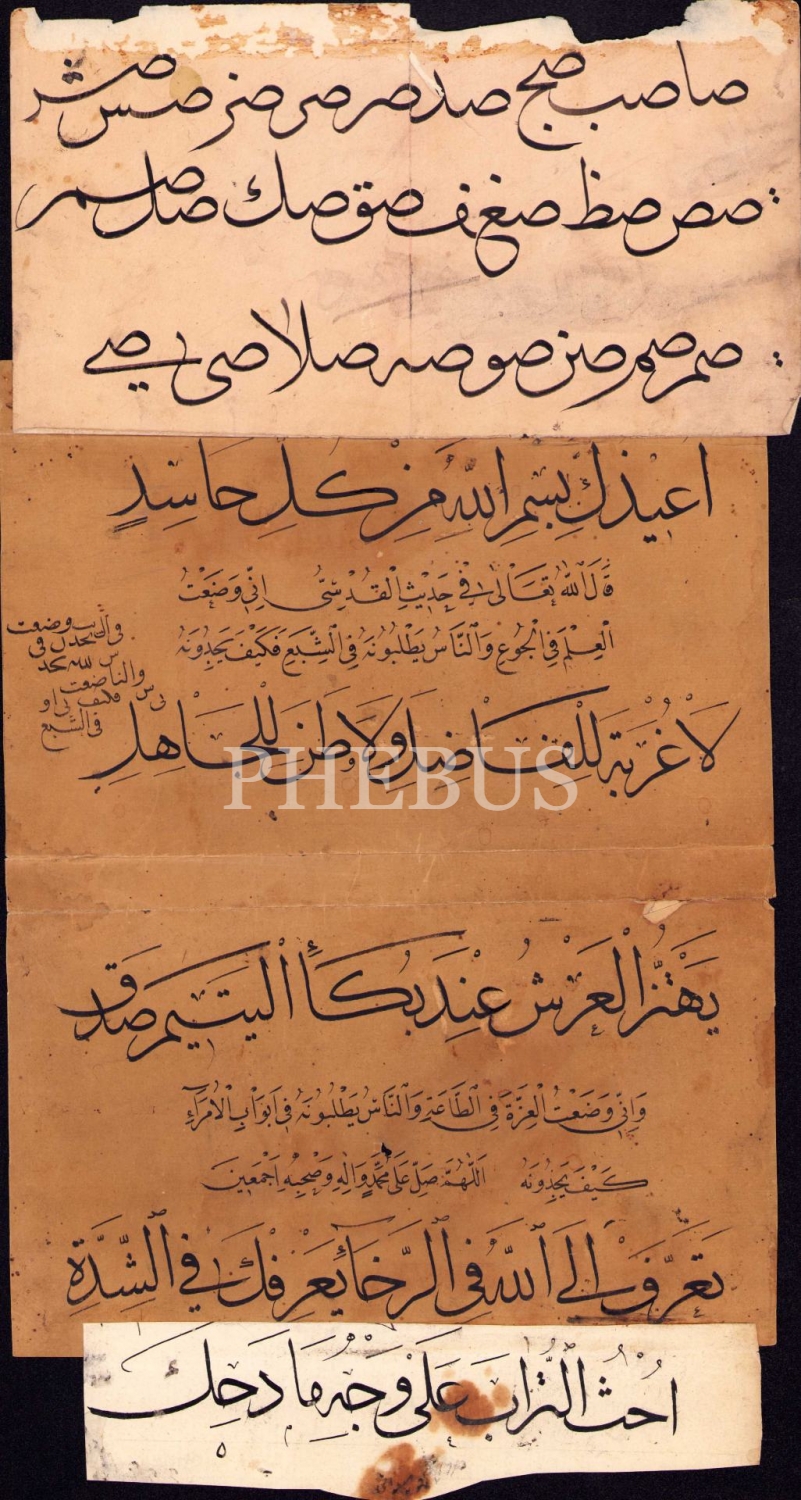 صا صب صج صد صر صر صز صس صش
صص صط صع صف صق صك صل صم
صم صم صن صو صه صلا صى صے
اُعِيْذُكَ بِسْمِ اللّٰهِ مِنْ كُلِّ حَاسِدٍ
قَالَ اللّٰهُ تَعَالٰى فِي حَدِيْثِ الْقُدْسِىِّ اِنِّي وَضَعْتُ
الْعِلْمَ فِي الْجُوعِ وَالنَّاسُ يَطْلُبُونَهُ فِي الشِّبَعِ فَكَيْفَ يَجِدُونَهُ
وضعت
فى
والنا
فكيف
فى الشبع
لَا غُرْبَةَ لِلْفَاضِلِ وَلَا وَطَنَ لِلْجَاهِلِ
PHEBUS
يَهْتَزُّ الْعَرْشُ عِنْدَ بُكَأِ الْيَتِيمِ صَدَقَ
وَاِنِّي وَضَعْتُ الْعِزَّةَ فِي الطَّاعَةِ وَالنَّاسُ يَطْلُبُونَهُ فِي اَبْوَابِ الْاُمَرَاءِ
كَيْفَ يَجِدُونَهُ اَللّٰهُمَّ صَلِّ عَلٰى مُحَمَّدٍ وَاٰلِهِ وَصَحْبِهِ اَجْمَعِينَ
تَعَرَّفْ اِلَى اللّٰهِ فِي الرَّخَأِ يَعْرِفْكَ فِي الشِّدَّةِ
اُحْثُ التُّرَابَ عَلٰى وَجْهِ مَادِحِكَ